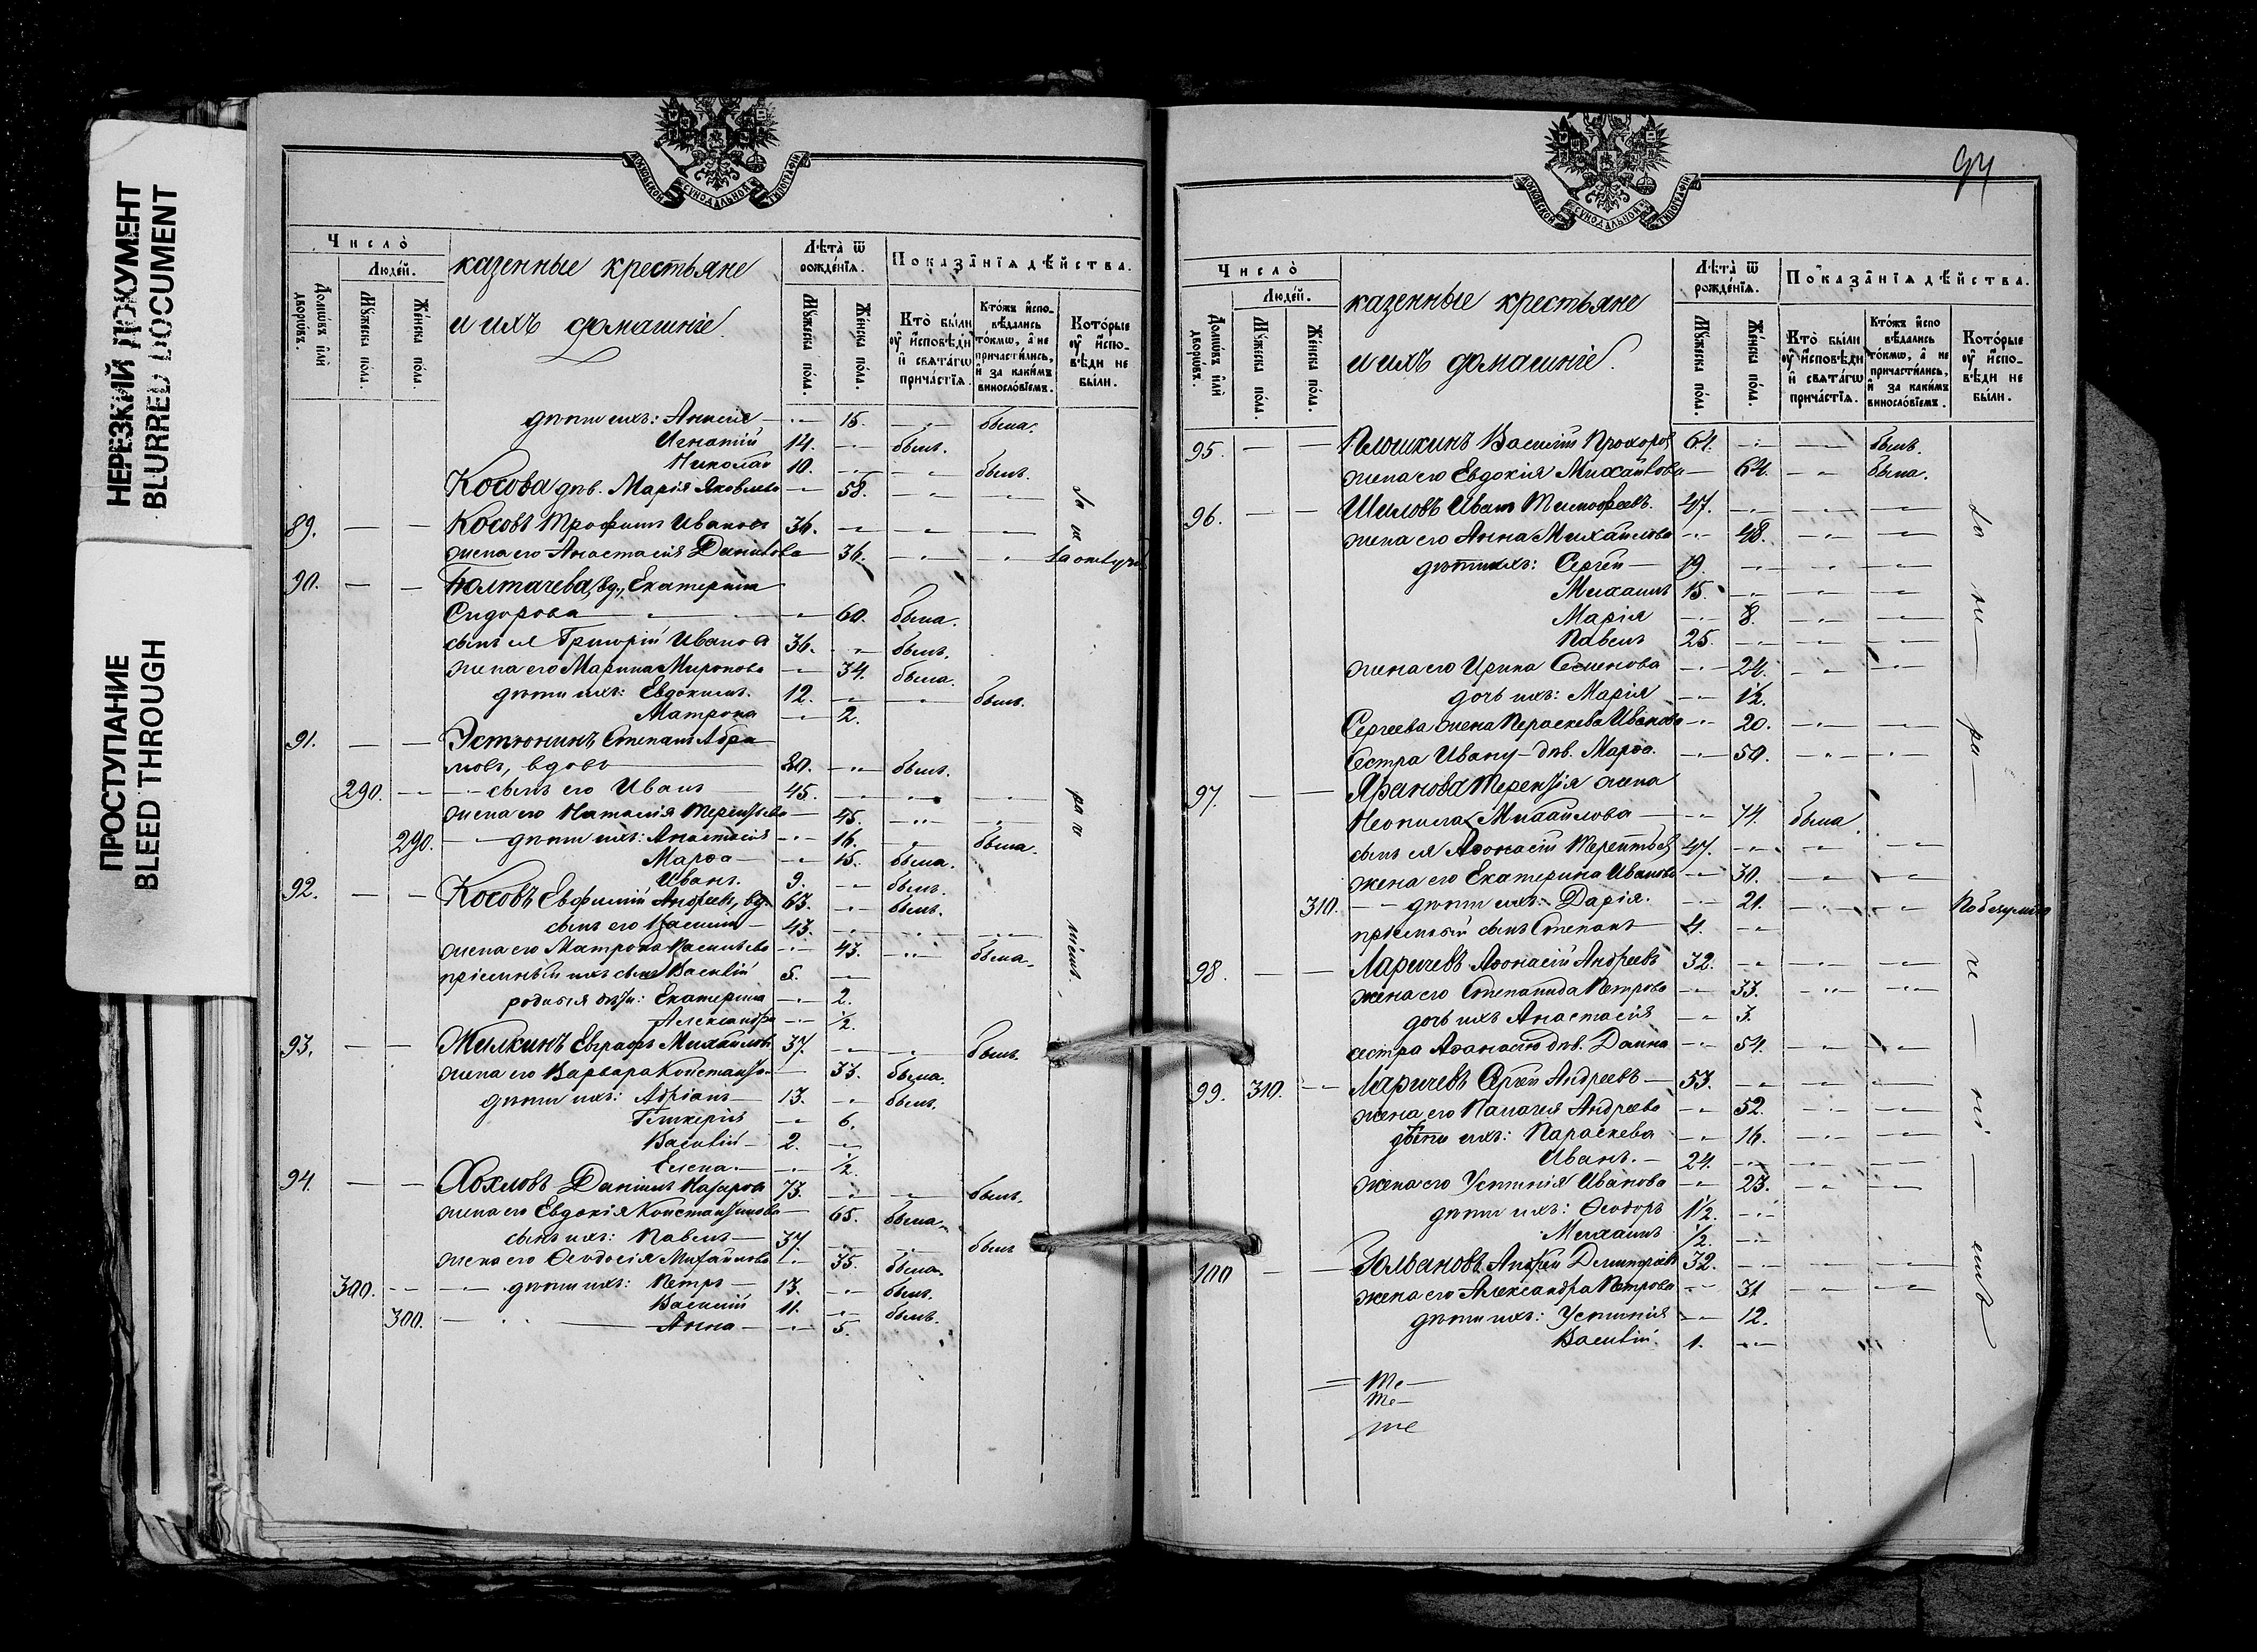 НЕРЕЗКИЙ ДОКУМЕНТ
BLURRED DOCUMENT
ПРОСТУПАНИЕ
BLEED THROUGH
МОСКОВСКОЙ СѴНОДАЛЬНОЙ ТИПОГРАФІИ
Число̀
Люде́й.
Домѡ́въ и҆лѝ дворѡ́въ.
Мꙋ́жеска по́ла.
Же́нска по́ла.
казенные крестьяне
и ихъ домашніе.
Лѣта̀ ѿ рожде́нїѧ.
Мꙋ́жеска по́ла.
Же́нска по́ла.
Показа̑нїѧ дѣ́йства.
Кто̀ бы́ли ᲂу҆ и҆спо́вѣди и҆ свѧта́гѡ прича́стїѧ.
Кто́жъ и҆спо­вѣ́дались то́кмѡ, а҆ не причасти́лись, и҆ за каки́мъ виносло́вїемъ.
Кото́рые ᲂу҆ и҆спо­вѣди не бы́ли.
дѣти ихъ: Анисія — 15. — была.
Игнатій 14. — былъ.
Николай 10. — — былъ.
Косова дѣв. Марія Яковлева — 58. — —
89. — — Косовъ Трофимъ Ивановъ 36. — — —
жена его Анастасія Данилова — 36. — —
90. — — Полтачева, вд., Екатерина
Сидорова — — 60. была.
сынъ ея Григорій Ивановъ 36. — былъ.
жена его Марина Миронова — 34. была.
дѣти ихъ: Евдокимъ. 12. — — былъ.
Матрона — 2.
91. — — Эстюнинъ Степанъ Абра
мовъ, вдовъ 80. — былъ.
290. — — сынъ его Иванъ 45. — — —
жена его Наталія Терентьева — 45. — —
290. — дѣти ихъ: Анастасія — 16. — была.
Марѳа — 15. была.
Иванъ. 9. — былъ.
92. — — Косовъ Евфимій Андреевъ, вд. 63. — былъ.
сынъ его Василій — 43. — — —
жена его Матрона Васильева — 43. — была.
пріемный ихъ сынъ Василій 5. —
родныя дѣти: Екатерина — 2.
Александра — 1/2.
93. — — Жилкинъ Евграфъ Михайловъ 37. — — былъ.
жена его Варвара Константи. — 33. была.
дѣти ихъ: Адріанъ — 13. — былъ.
Гликерія — 6.
Василій — 2. —
Елена. — 1/2.
94. — — Хохловъ Даніилъ Назаровъ 73. — — былъ.
жена его Евдокія Константинова — 65. была.
сынъ ихъ: Павелъ — 37. — — былъ
жена его Ѳеодосія Михайлова — 35. была.
300. — — дѣти ихъ: Петръ — 13. — былъ.
Василій 11. — былъ.
300. — Анна — 5.
94
МОСКОВСКОЙ СѴНОДАЛЬНОЙ ТИПОГРАФІИ
Число̀
Люде́й.
Домѡ́въ и҆лѝ дворѡ́въ.
Мꙋ́жеска по́ла.
Же́нска по́ла.
казенные крестьяне
и ихъ домашніе.
Лѣта̀ ѿ рожде́нїѧ.
Мꙋ́жеска по́ла.
Же́нска по́ла.
Показа̑нїѧ дѣ́йства.
Кто̀ бы́ли ᲂу҆ и҆спо́вѣди и҆ свѧта́гѡ прича́стїѧ.
Кто́жъ и҆спо вѣ́дались то́кмѡ, а҆ не причасти́лись, и҆ за каки́мъ виносло́вїемъ.
Кото́рые ᲂу҆ и҆спо­вѣди не бы́ли.
95. — — Плошкинъ Василій Прохоров 64. — — былъ.
жена его Евдокія Михайлова — 64. — была.
96. — — Шиловъ Иванъ Тимофеевъ. 47. — — —
жена его Анна Михайлова — 48. — —
дѣти ихъ: Сергей — 19. — — —
Михаилъ 15. — — —
Марія — 8. — —
Павелъ 25. — — —
жена его Ирина Семенова — 24. — —
дочь ихъ: Марія — 1 1/2.
Сергеева жена Параскева Иванова — 20. — —
Сестра Ивану дѣв. Марѳа. — 50. — —
97. — — Яранова Терентія жена
Неонила Михайлова — 74. была.
сынъ ея Аѳонасій Терентьев 47. — — —
жена его Екатерина Иванова — 30. — —
310. — дѣти ихъ: Дарія. — 21. — — По безумію
пріемный сынъ Степанъ 4. —
98. — — Ларичевъ Аѳонасій Андреевъ 32. — — —
жена его Степанида Петрова — 33. — —
дочь ихъ Анастасія — 3.
сестра Аѳанасію дѣв. Домна — 54. — —
99. 310. — Ларичевъ Сергей Андреевъ — 53. — — —
жена его Палагея Андреева — 52. — —
дѣти ихъ: Параскева — 16. — —
Иванъ. — 24. — — —
жена его Устинія Иванова — 23. — —
дѣти ихъ: Ѳеодоръ 1 1/2. —
Михаилъ 1/2. —
100 — — Андрей Димитріевъ 32. — — —
жена его Александра Петрова — 31 — —
дѣти ихъ: Устинія — 12.
Василій. 1. —
= Те —
Те —
те